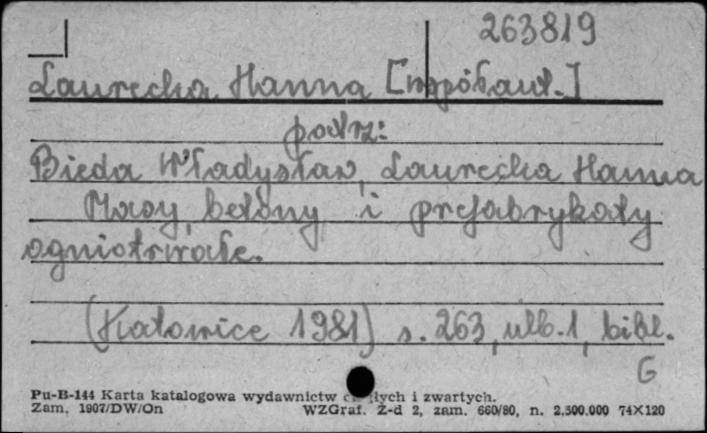 263819
Laurecka Hanna [współaut.]
patrz:
Bieda Władysław, Laurecka Hanna
Masy, betony i prefabrykaty
ogniotrwałe.
(Katowice 1981) s. 263, nlb. 1, bibl.
G
Pu-B-144 Karta katalogowa wydawnictw ciągłych i zwartych.
Zam. 1907/DW/On WZGraf. Z-d 2, zam. 660/80, n. 2.500.000 74×120